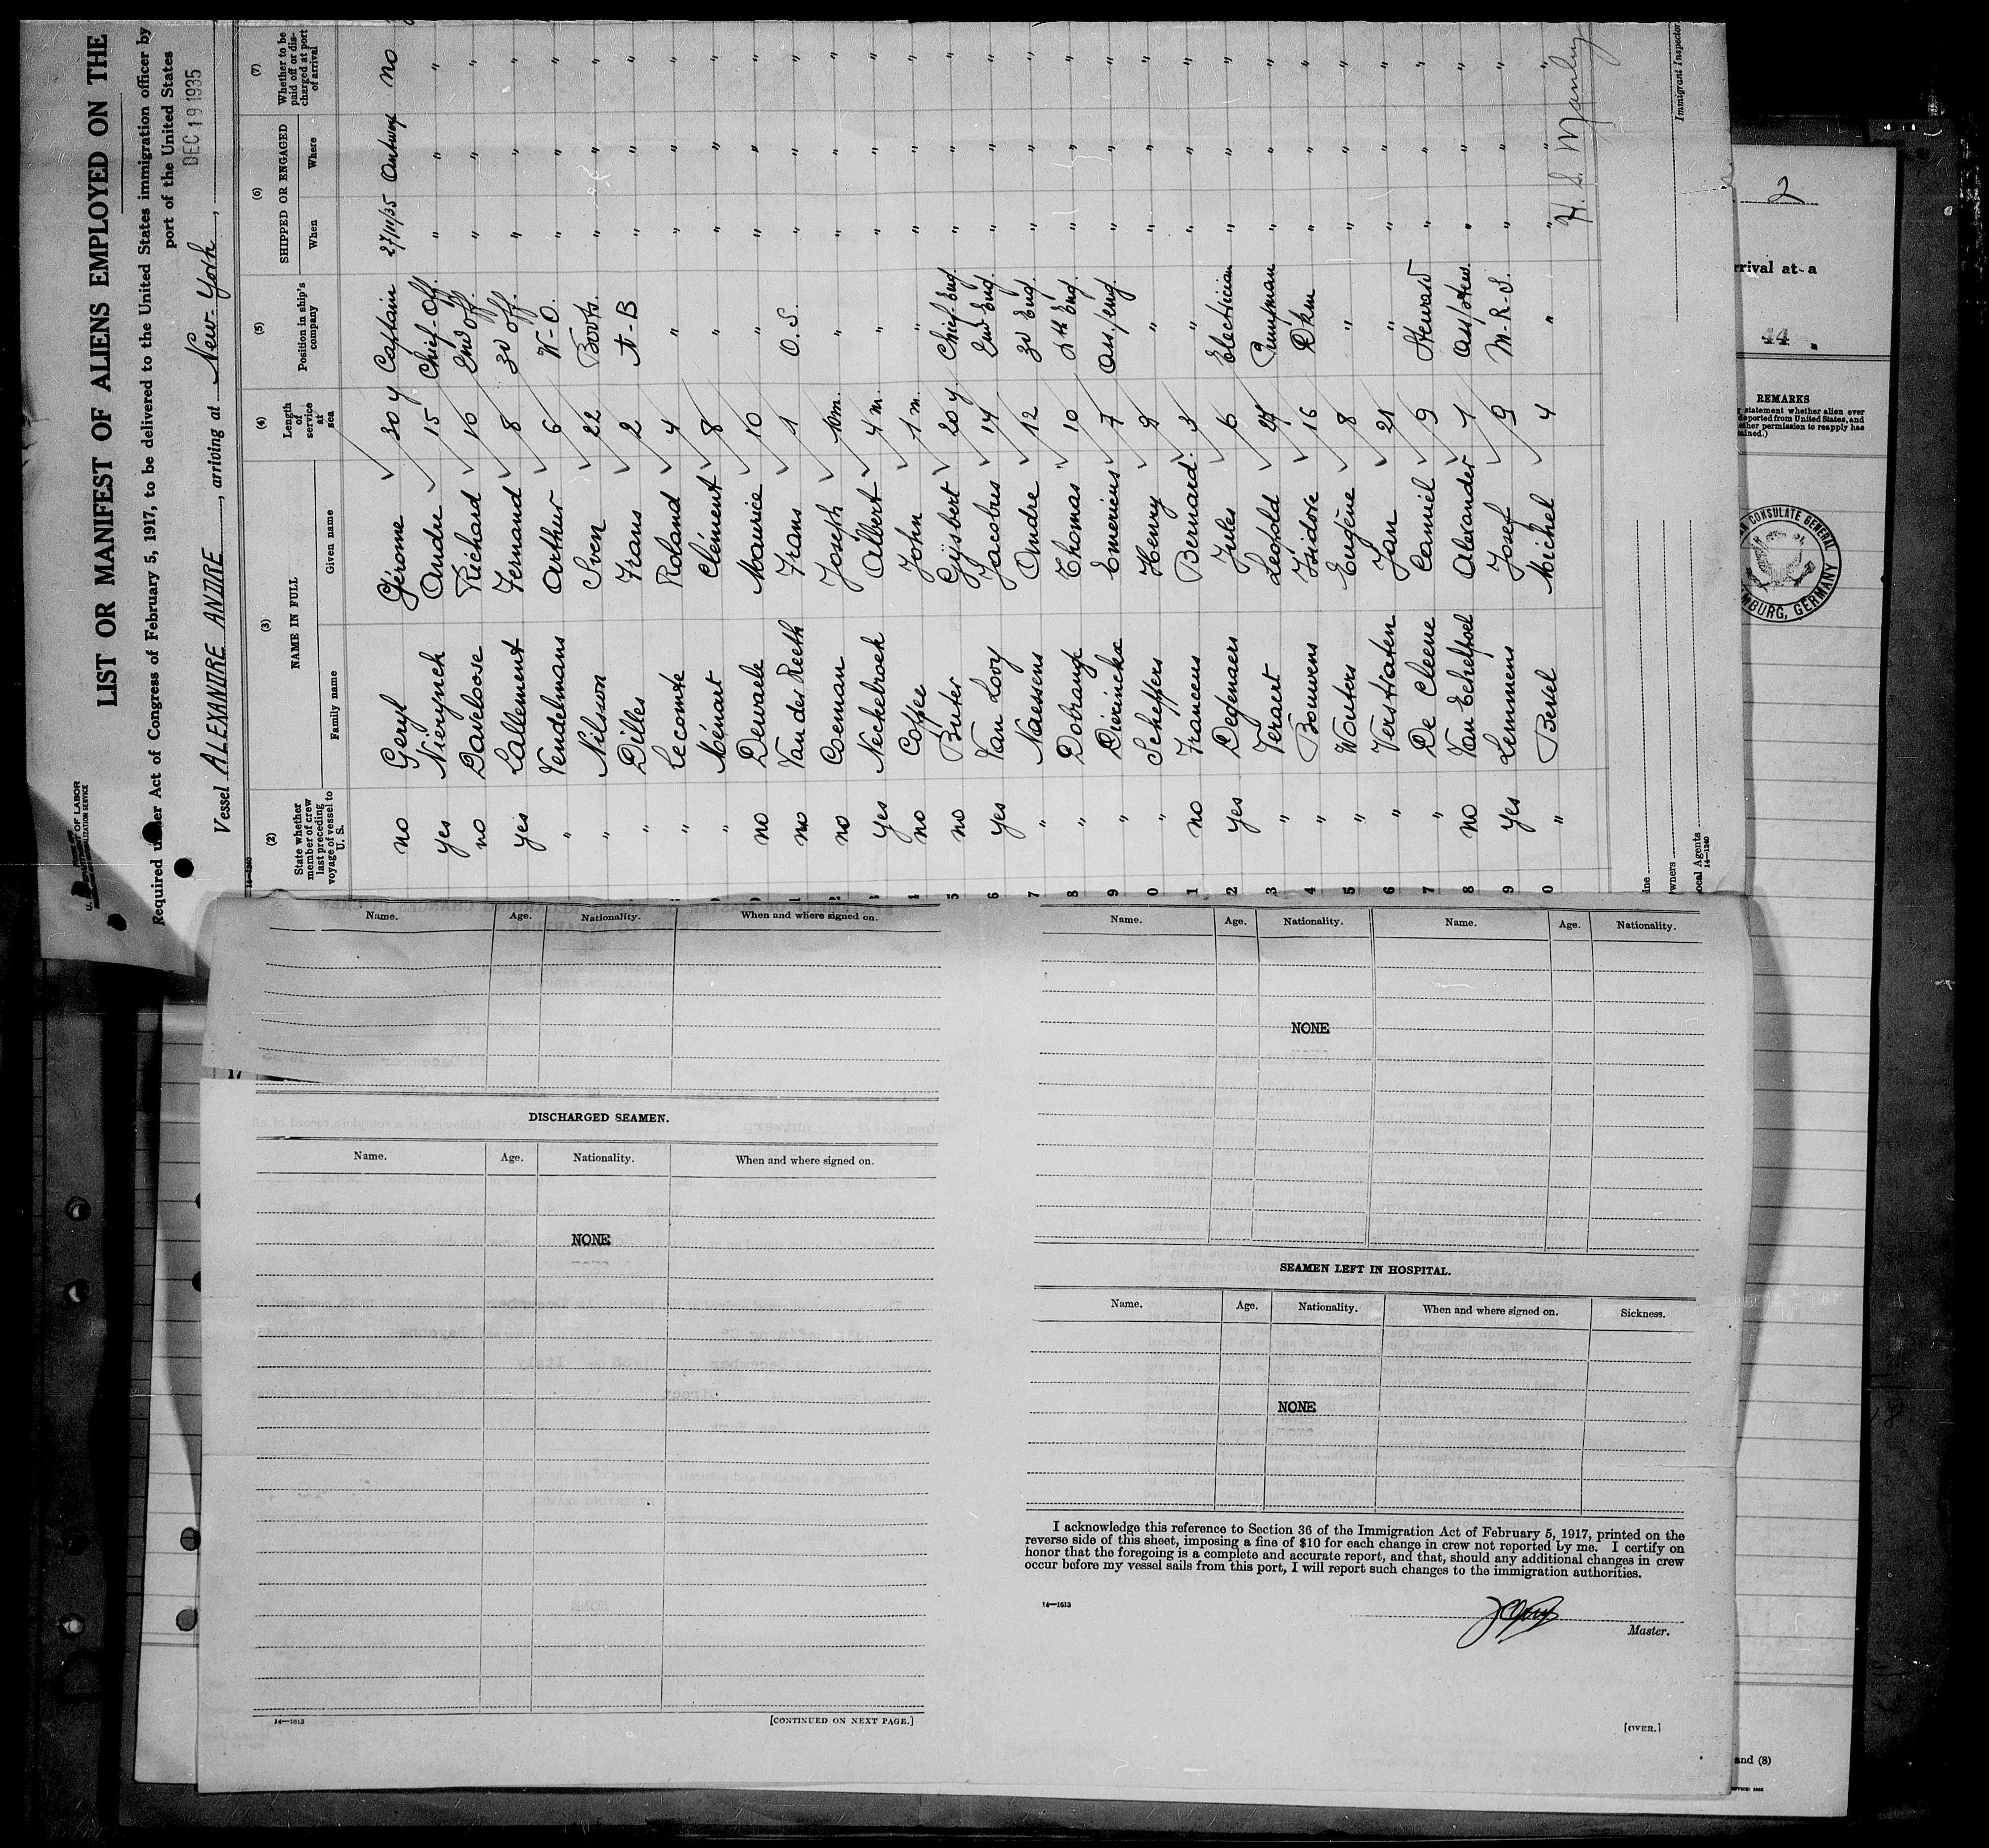 LIST OR MANIFEST OF ALIENS EMPLOYED ON THE
Required under Act of Congress of February 5, 1917, to be delivered to the United States immigration officer by
port of the United States
Vessel ALEXANDRE ANDRE, arriving at New-York, DEC 19 1935
(2) (3) (4) (5) (6) (7)
State whether member of crew last preceding voyage of vessel to U. S.
NAME IN FULL
Family name Given name
Length of service at sea
Position in ship's company
SHIPPED OR ENGAGED
When Where
Whether to be paid off or discharged at port of arrival
no Geryl Gérome 30 y Captain 27/11/35 Antwerp no
yes Nierynck André 15 Chief-Off. " " "
no Daveloose Richard 10 2nd Off. " " "
yes Lallement Fernand 8 3d Off. " " "
" Vendelmans Arthur 6 W-O. " " "
" Nilsson Sven 22 Boots. " " "
" Dilles Frans 2 A-B " " "
" Lecomte Roland 4 " " " "
" Ménart Clément 8 " " " "
no Dewaele Maurice 10 " " " "
no Van der Reeth Frans 1 O.S. " " "
no Coeman Joseph 10 m. " " " "
yes Neckebroek Albert 4 m. " " " "
no Coffee John 1 m. " " " "
no Buter Gijsbert 20 y. Chief-Eng. " " "
yes Van Looy Jacobus 14 2nd Eng. " " "
" Naessens André 12 3d Eng. " " "
" Dobrange Thomas 10 4th Eng. " " "
" Dierinckx Emericus 7 ass/eng. " " "
" Scheffers Henry 9 " " " "
no Francens Bernard 3 " " " "
yes Degenaers Jules 6 Electrician " " "
" Veraert Leopold 24 Pumpman " " "
" Bouwens Isidore 16 D'km " " "
" Wouters Eugène 8 " " " "
" Verstraten Jan 21 " " " "
" De Cleene Camiel 9 Steward " " "
no Van Echelpoel Alexander 1 ass/stew. " " "
yes Lemmens Josef 9 M-R-S. " " "
" Benel Michel 4 " " " "
H. S. Manly
Immigrant Inspector
14—1240
2
rrival at a
44
REMARKS
CONSULATE GENERAL
HAMBURG, GERMANY
and (8)
Name. Age. Nationality. When and where signed on.
DISCHARGED SEAMEN.
Name. Age. Nationality. When and where signed on.
NONE
14—1613
[CONTINUED ON NEXT PAGE.]
Name. Age. Nationality. Name. Age. Nationality.
NONE
SEAMEN LEFT IN HOSPITAL.
Name. Age. Nationality. When and where signed on. Sickness.
NONE
I acknowledge this reference to Section 36 of the Immigration Act of February 5, 1917, printed on the
reverse side of this sheet, imposing a fine of $10 for each change in crew not reported by me. I certify on
honor that the foregoing is a complete and accurate report, and that, should any additional changes in crew
occur before my vessel sails from this port, I will report such changes to the immigration authorities.
14—1613
Master.
[OVER.]